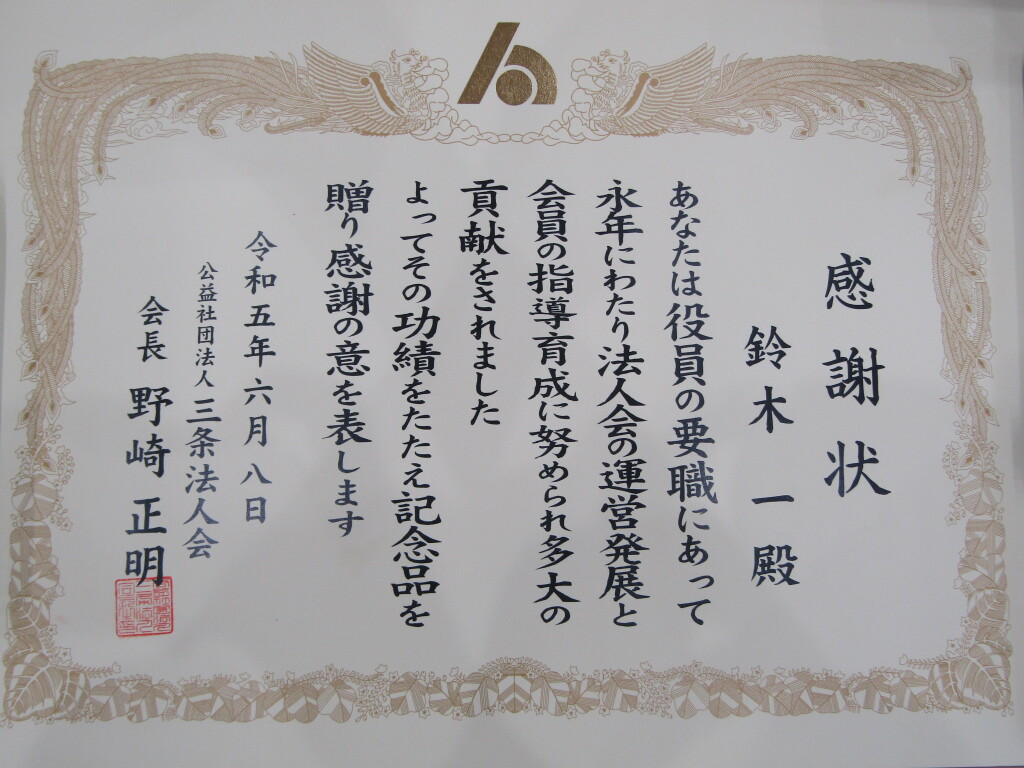 感謝状
鈴木一殿
あなたは役員の要職にあって
永年にわたり法人会の運営発展と
会員の指導育成に努められ多大の
貢献をされました
よってその功績をたたえ記念品を
贈り感謝の意を表します
令和五年六月八日
公益社団法人三条法人会
会長 野崎正明